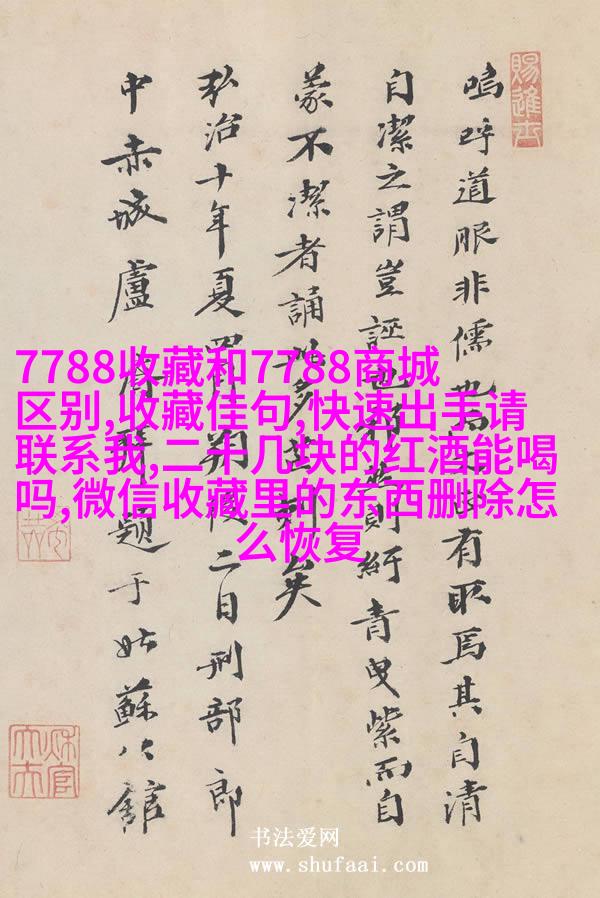 賜進士
嗚呼道服非儒也有取焉其自清
自潔之謂豈誣也則紆青曳紫而自
蒙不潔者誦多矣
弘治十年夏朔後二日刑部郎
中赤城盧題于姑蘇公館
7788收藏和7788商城
区别,收藏佳句,快速出手请
联系我,二十几块的红酒能喝
吗,微信收藏里的东西删除怎
么恢复
书法爱网
www.shufaai.com